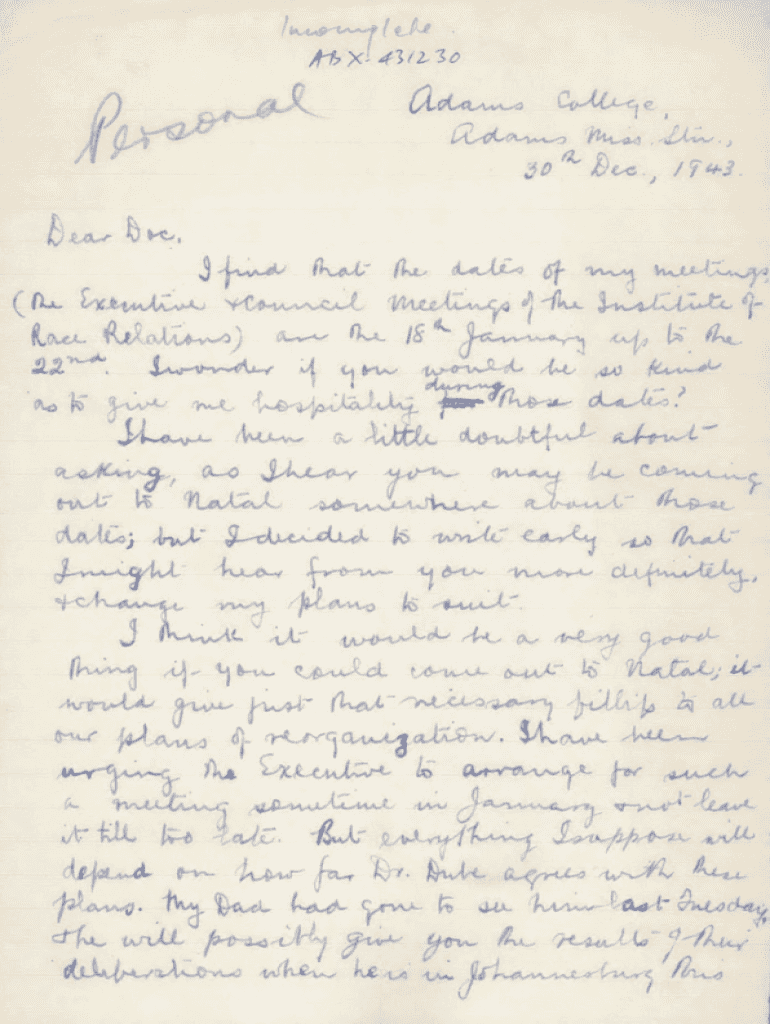 Incomplete.
ABX-431230
Personal
Adams College,
Adams Miss. Stn.,
30th Dec., 1943.
Dear Doc,
I find that the dates of my meetings,
(the Executive & Council Meetings of the Institute of
Race Relations) are the 18th January up to the
22nd. I wonder if you would be so kind
as to give me hospitality during those dates?
I have been a little doubtful about
asking, as I hear you may be coming
out to Natal somewhere about those
dates; but I decided to write early so that
I might hear from you more definitely,
& change my plans to suit.
I think it would be a very good
thing if you could come out to Natal; it
would give just that necessary fillip to all
our plans of reorganization. I have been
urging the Executive to arrange for such
a meeting sometime in January & not leave
it till too late. But everything I suppose will
depend on how far Dr. Dube agrees with these
plans. My Dad had gone to see him last Tuesday,
& he will possibly give you the results of their
deliberations when he is in Johannesburg this